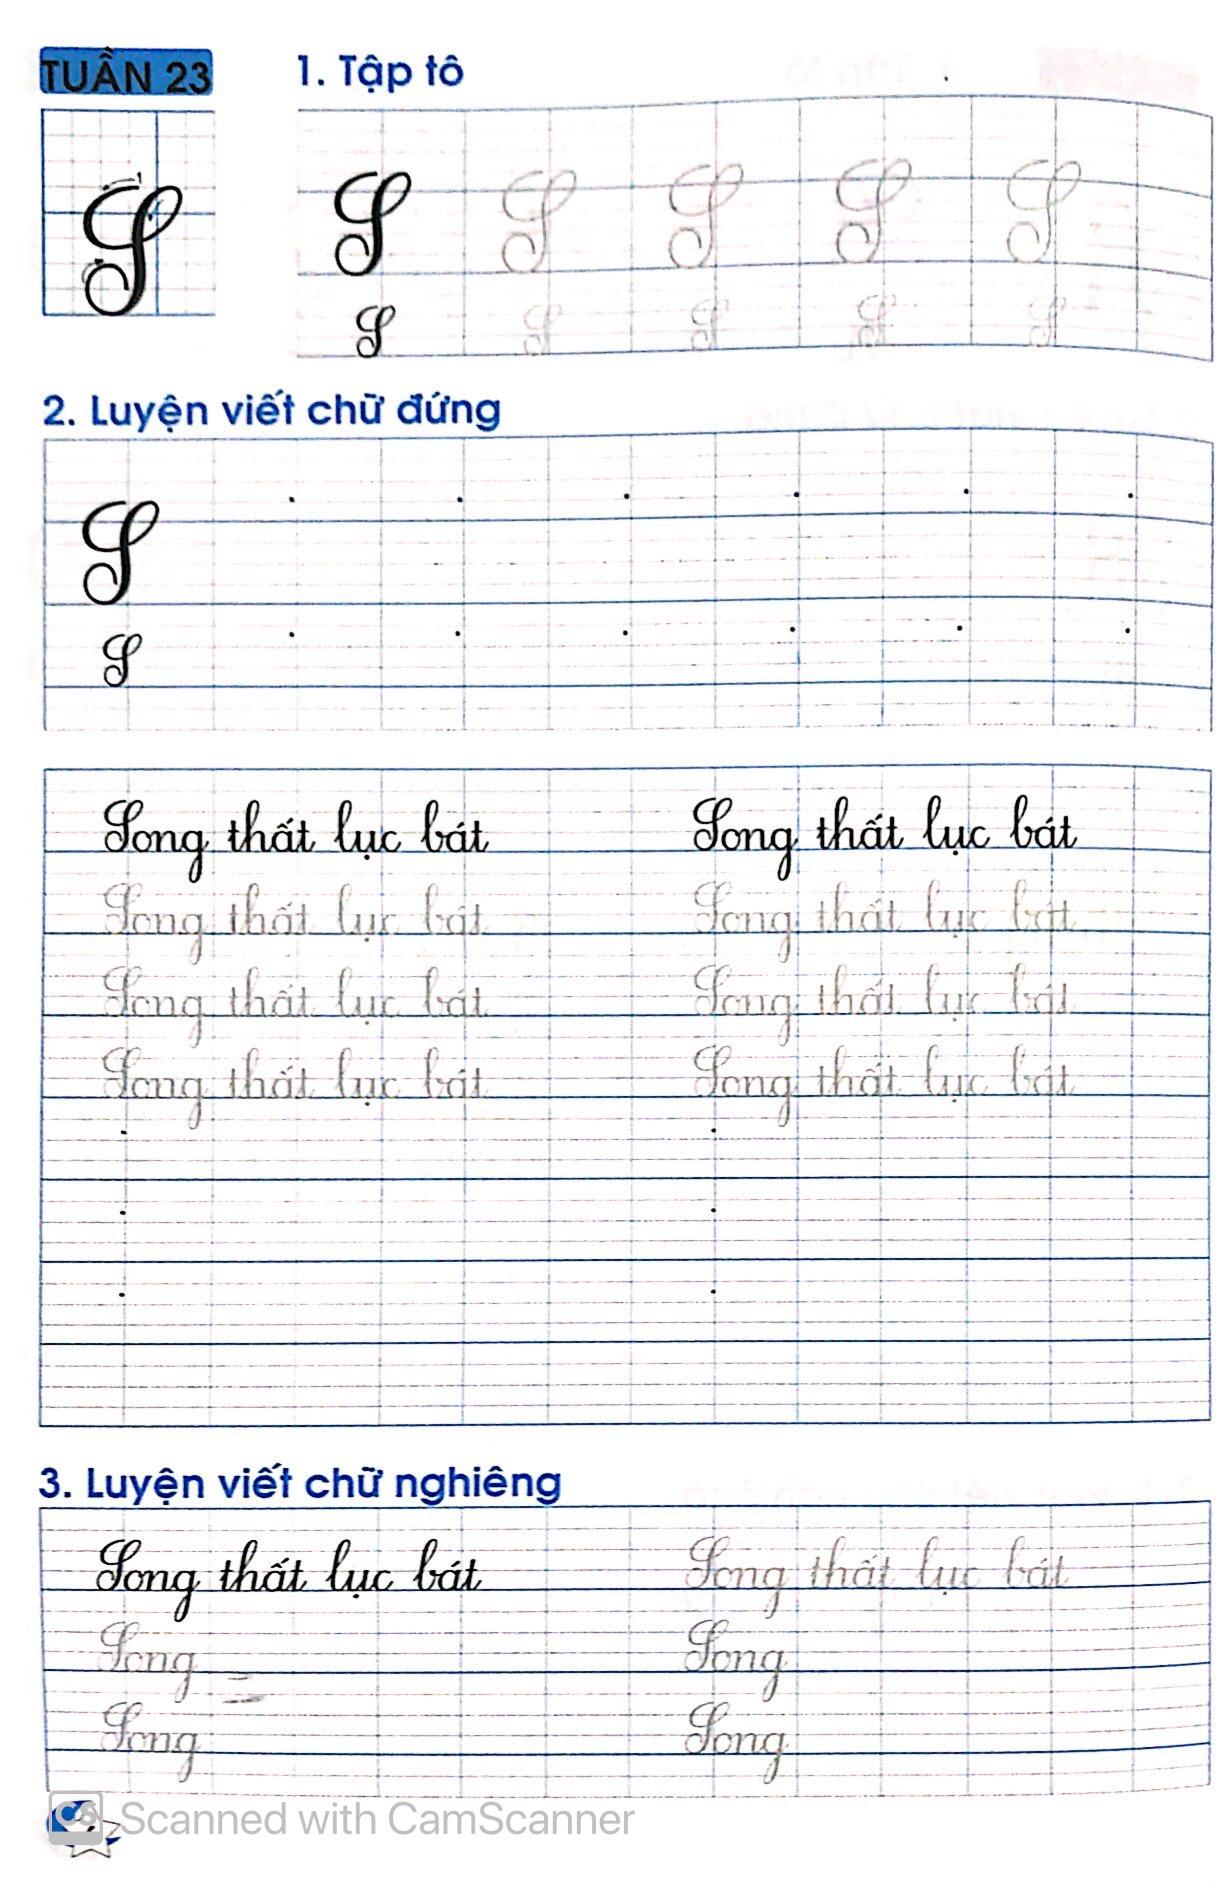 TUẦN 23
1. Tập tô
S
S S S S S
S S S S S
2. Luyện viết chữ đứng
S
S
Song thất lục bát Song thất lục bát
Song thất lục bát Song thất lục bát
Song thất lục bát Song thất lục bát
Song thất lục bát Song thất lục bát
3. Luyện viết chữ nghiêng
Song thất lục bát Song thất lục bát
Song Song
Song Song
CS Scanned with CamScanner